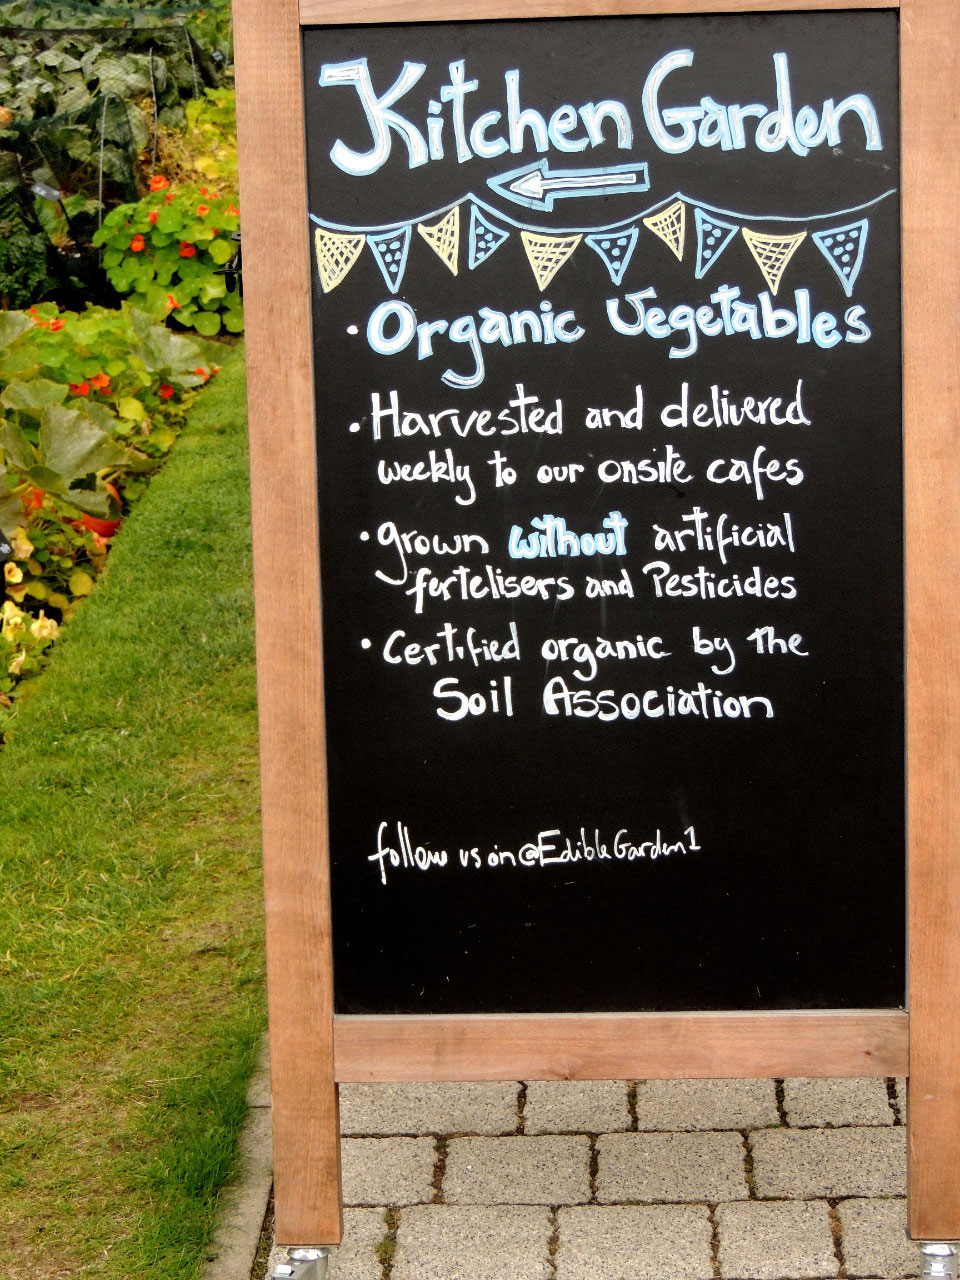 Kitchen Garden
• Organic Vegetables
• Harvested and delivered
weekly to our onsite cafes
• grown without artificial
fertelisers and Pesticides
• Certified organic by the
Soil Association
follow us on @EdibleGarden1